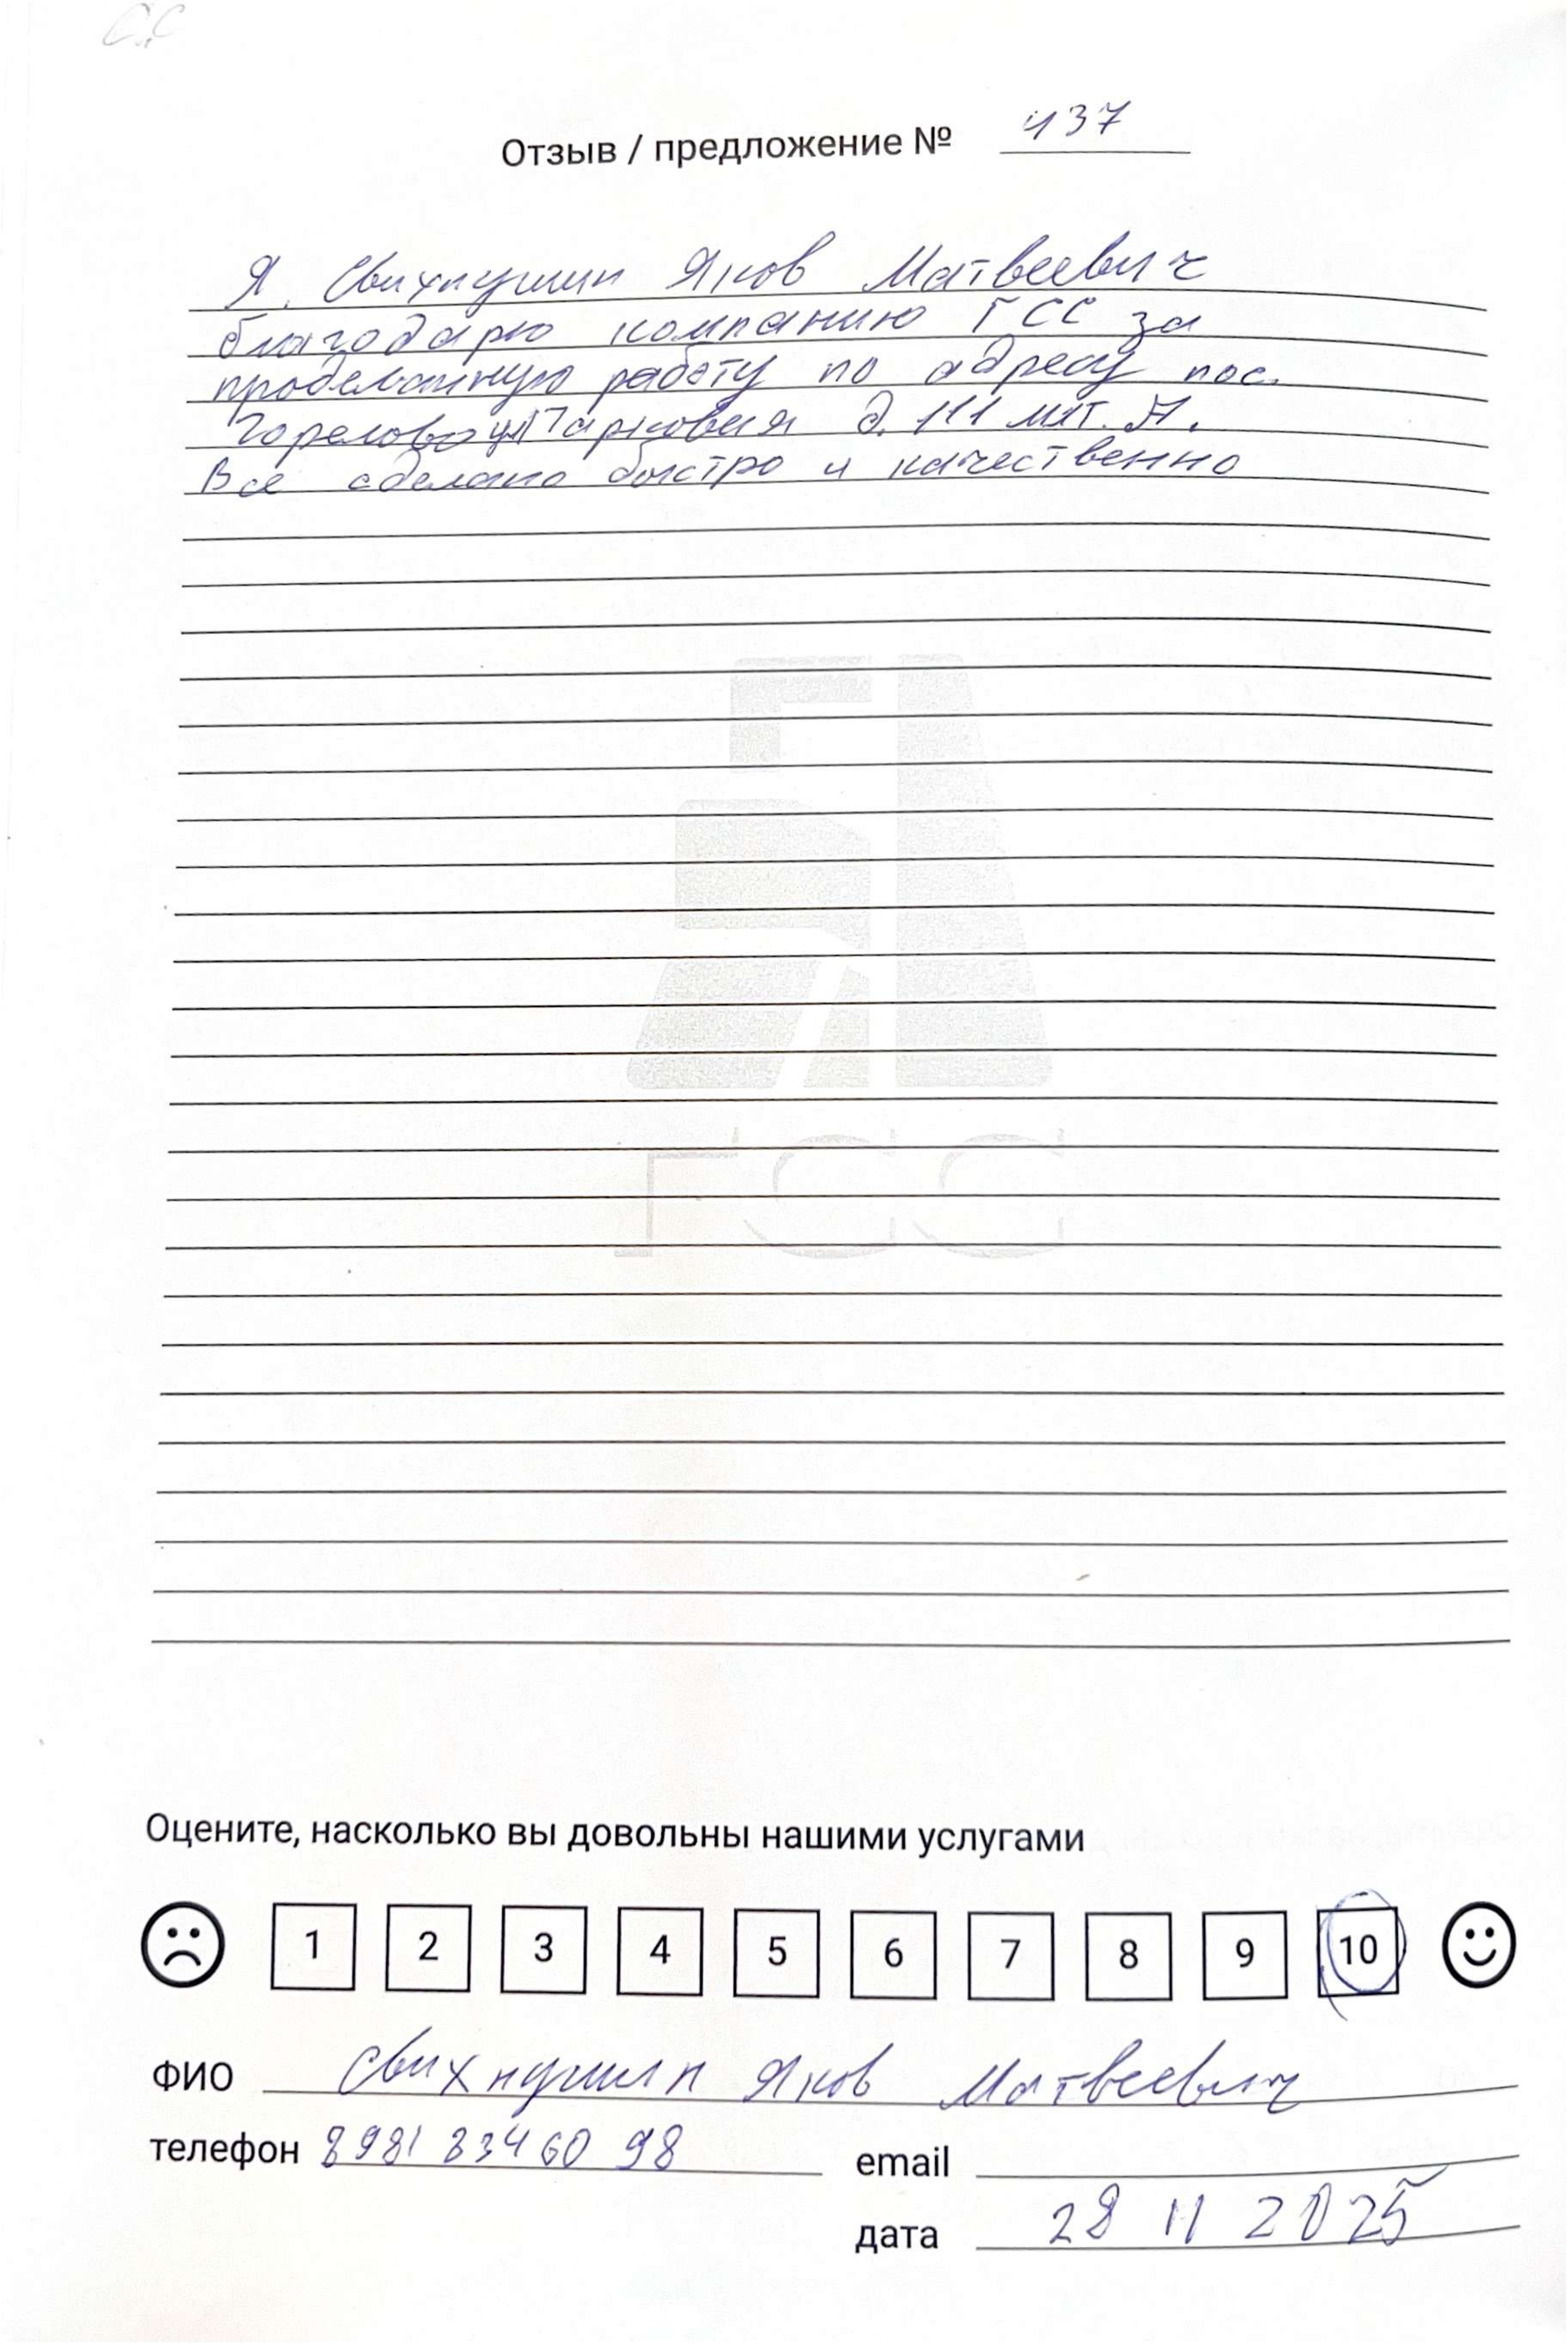 Отзыв / предложение № 437
Я, Свихнушин Яков Матвеевич
благодарю компанию ГСС за
проделанную работу по адресу пос.
Горелово ул Парковая д. 111 лит. А.
Все сделано быстро и качественно
ГСС
Оцените, насколько вы довольны нашими услугами
1 2 3 4 5 6 7 8 9 10
ФИО Свихнушин Яков Матвеевич
телефон 8981 834 60 98 email
дата 28 11 2025